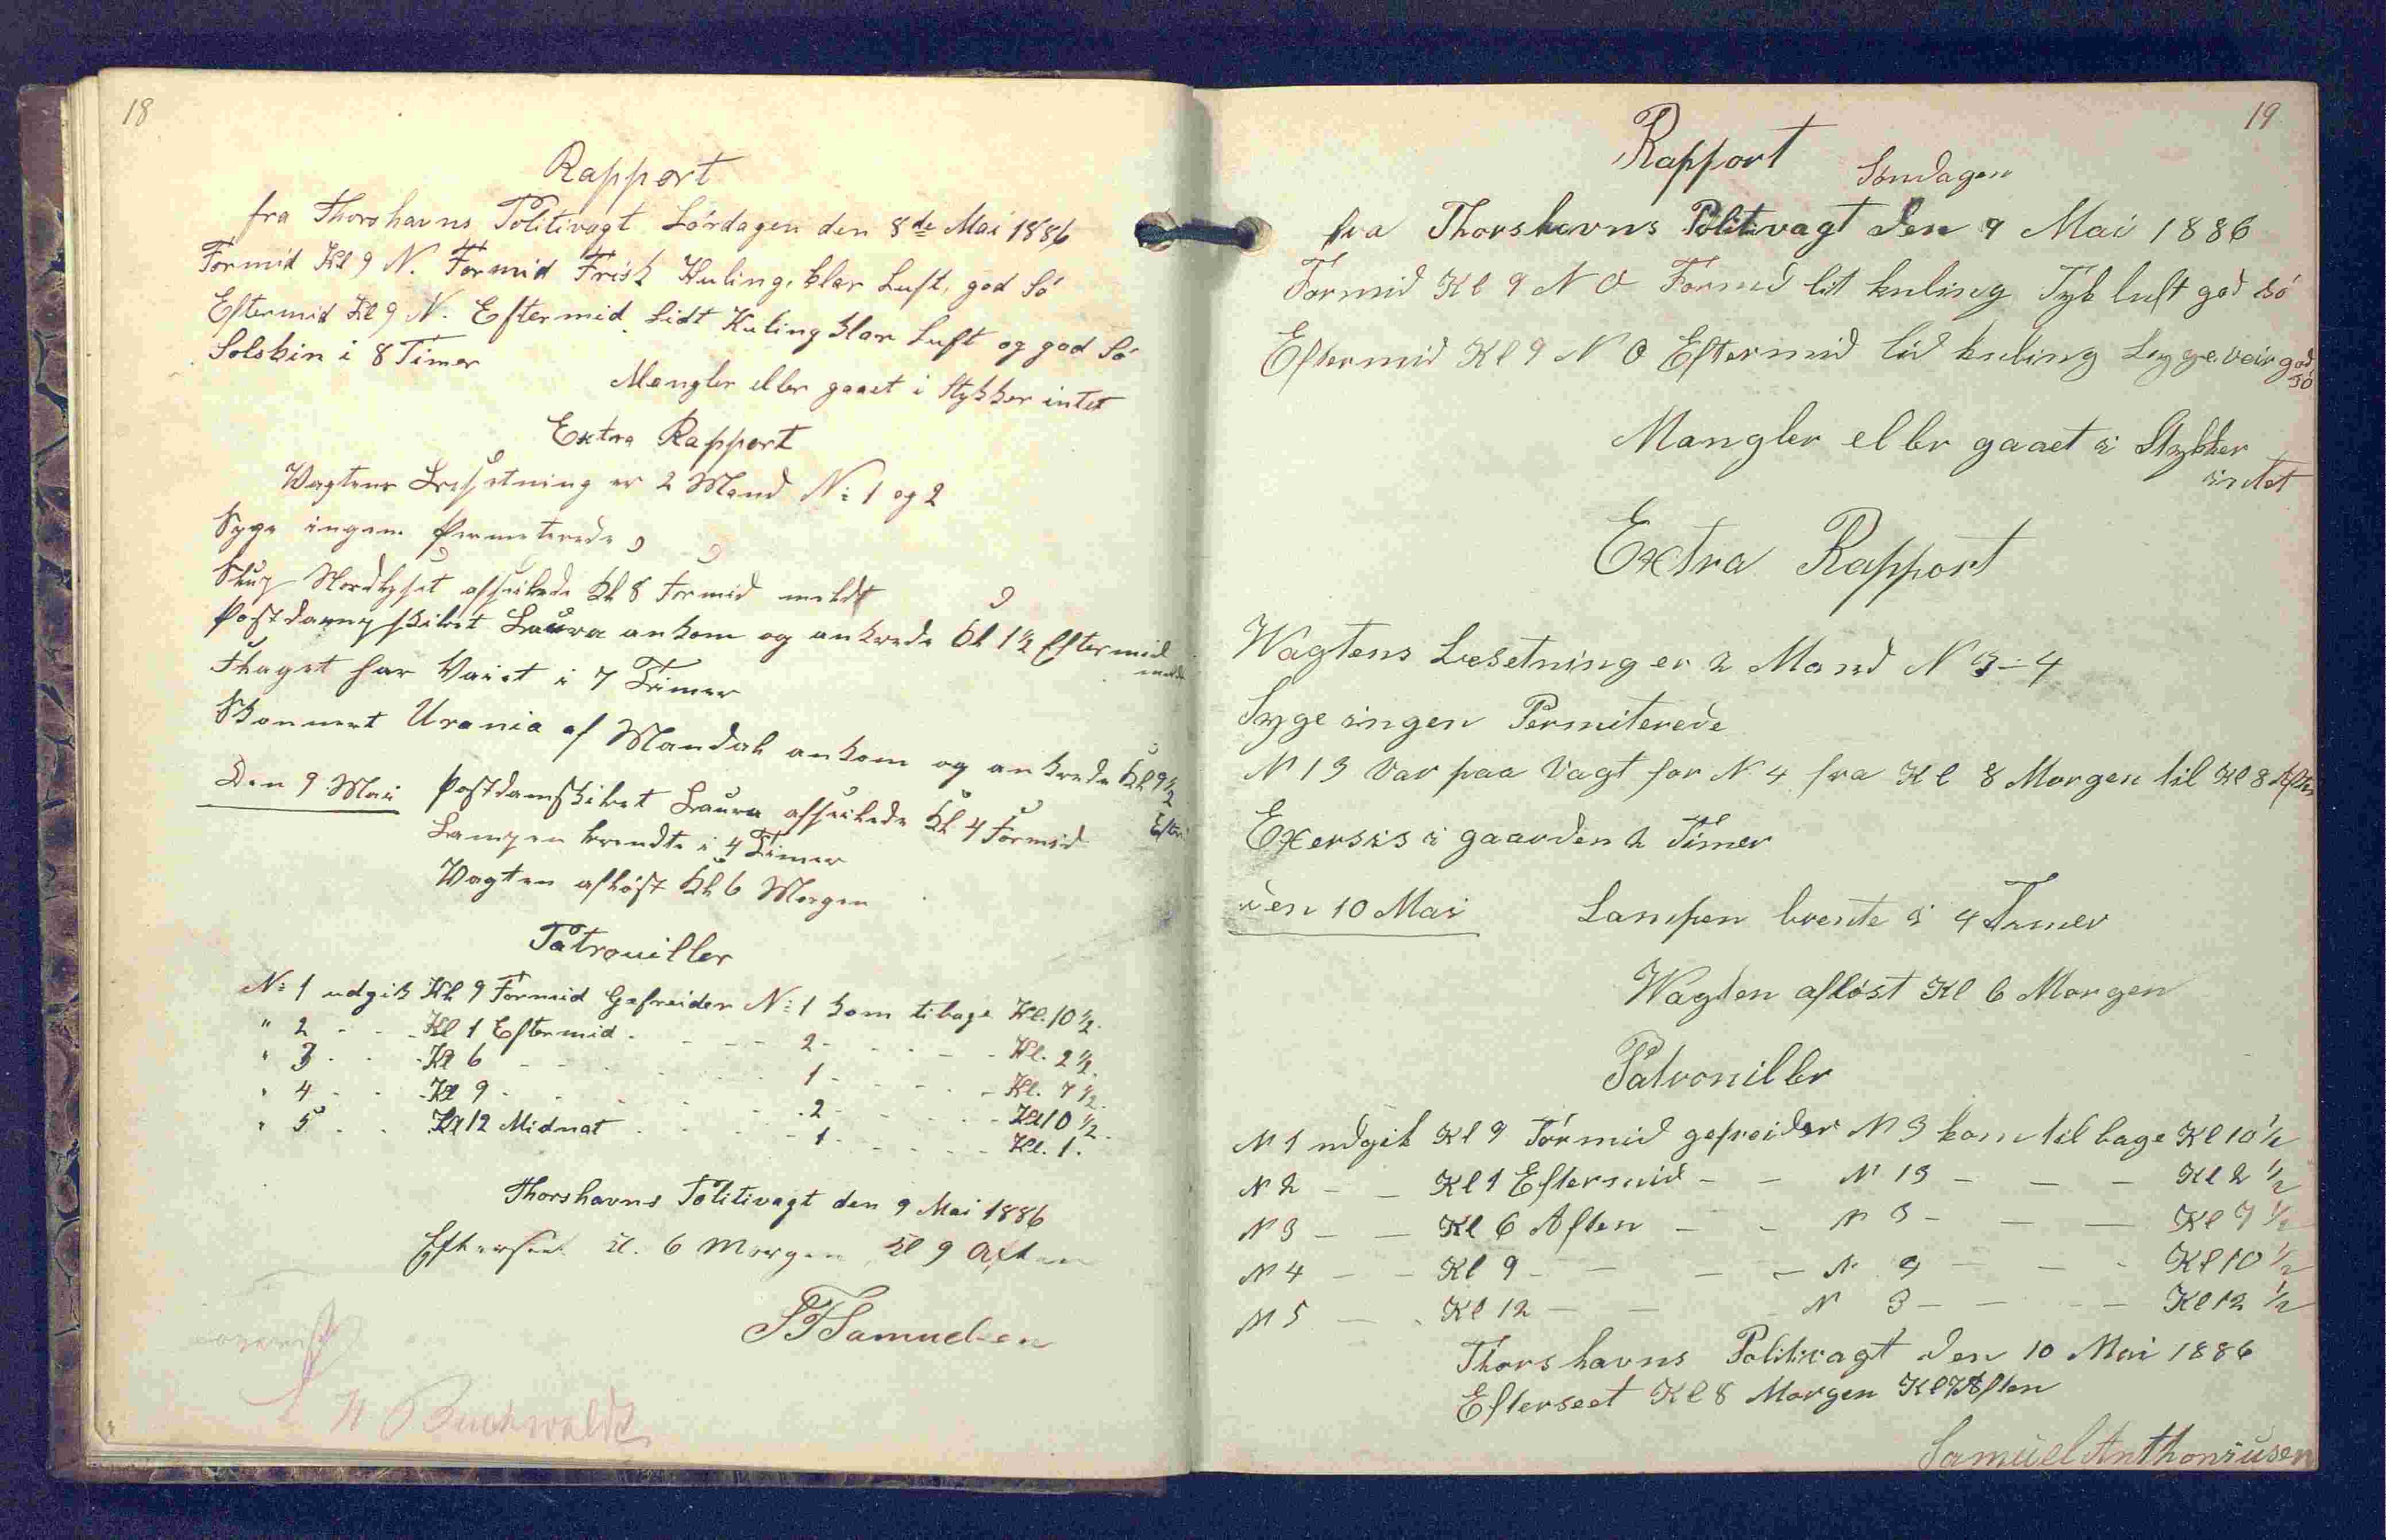 18
Rapport
fra Thorshavns Politivagt Lørdagen den 8de Mai 1886
Formid Kl 9 N. Formid Frisk Kuling, klar Luft, god Sö
Eftermid Kl 9 N. Eftermid. Lidt Kuling klar Luft og god Sö
Solskin i 8 Timer
Mangler eller gaaet i Stykker intet
Extra Rapport
Vagtens Besetning er 2 Mand No 1 og 2
Syge ingen Permeterede
Slup Nordlyset afseilede Kl 8 Formid meldt
Postdampskibet Laura ankom og ankrede Kl 1 1/2 Eftermid
Flaget har Vaiet i 7 Timer
Skonnert Urania af Mandal ankom og ankrede Kl 9 1/2
Efter
Den 9 Mai Postdamskibet Laura afseilede Kl 4 Formid
Lampen brendte i 4 Timer
Vagten aflöst Kl 6 Morgen
Patrouiller
No 1 udgik Kl 9 Formid Gefreider No 1 kom tibage Kl. 10 1/2.
" 2 - - Kl 1 Eftermid. - - - 2 - - - - Kl. 2 1/2.
" 3 - - Kl 6 - - - - 1 - - - - Kl. 7 1/2.
" 4 - - Kl 9 - - - - 2 - - - - Kl 10 1/2.
" 5 - - Kl 12 Midnat - - - 1 - - - - Kl. 1.
Thorshavns Politivagt den 9 Mai 1886
Efterseet Kl. 6 Morgen, Kl 9 Aften
Samuelsen
H Buchwaldt
19
Rapport
Søndagen
fra Thorshavns Politivagt Den 9 Mai 1886
Formid Kl 9 N O Formid lit kuling Tyk luft god sö
Eftermid Kl 9 N O Eftermid lid kuling Leggeveir god
sö
Mangler eller gaaet i Stykker
intet
Extra Rapport
Wagtens Besetning er 2 Mand N 3-4
Syge ingen Permiterede
N 13 Var paa Vagt for N 4 fra Kl 8 Morgen til Kl 8 Aften
Exersis i gaarden 2 Timer
den 10 Mai Lampen brente i 4 Timer
Wagten aflöst Kl 6 Morgen
Patroniller
N 1 udgik Kl 9 Formid gefreider N 3 kom til bage Kl 10 1/2
N 2 - - Kl 1 Eftermid - - N 13 - - - Kl 2 1/2
N 3 - - Kl 6 Aften - - N 3 - - - Kl 7 1/2
N 4 - - Kl 9 - - - - N 4 - - - Kl 10 1/2
N 5 - - Kl 12 - - - N 3 - - - Kl 12 1/2
Thorshavns Politivagt den 10 Mai 1886
Efterseet Kl 8 Morgen Kl Aften
Samuel Anthoniusen